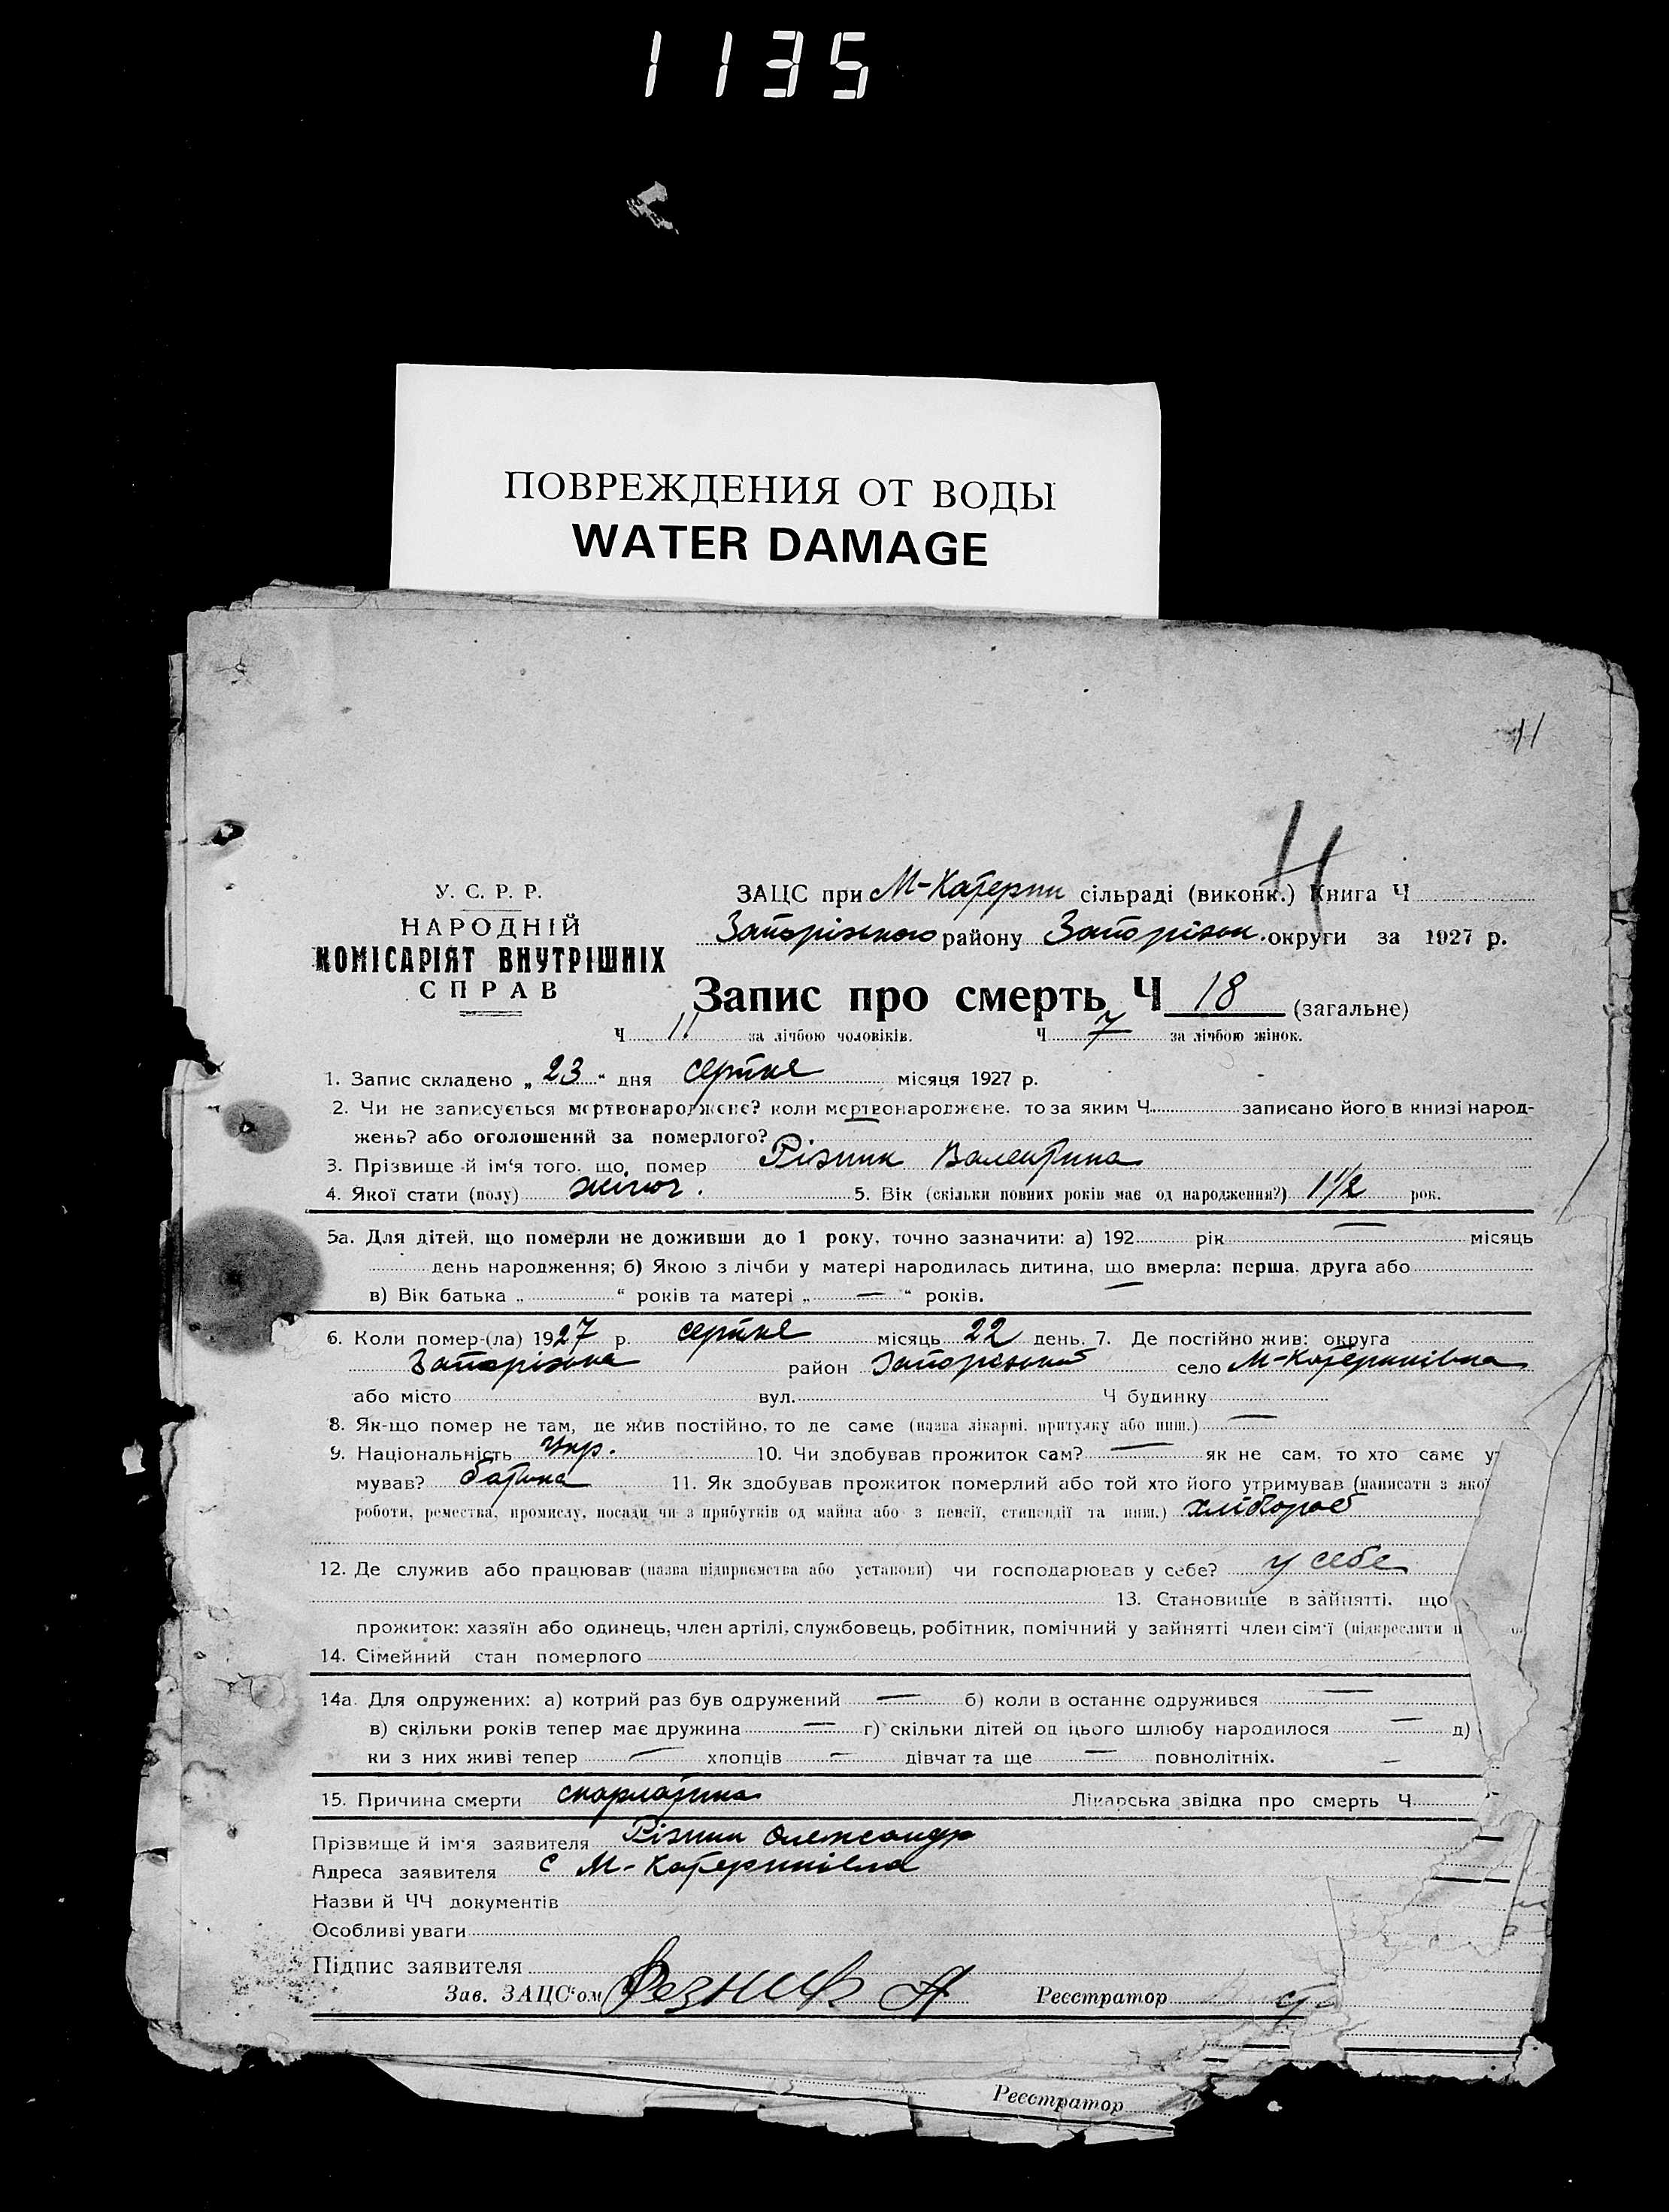 1135
ПОВРЕЖДЕНИЯ ОТ ВОДЫ
WATER DAMAGE
11
У. С. Р. Р.
НАРОДНІЙ
КОМІСАРІЯТ ВНУТРІШНІХ
СПРАВ
ЗАЦС при М-Катерин сільраді (виконк.) Книга Ч
Запорізького району Запорізьк. округи за 1927 р.
Запис про смерть Ч 18 (загальне)
Ч 11 за лічбою чоловіків. Ч 7 за лічбою жінок.
1. Запис складено „ 23 “ дня серпня місяця 1927 р.
2. Чи не записується мертвонароджене? коли мертвонароджене, то за яким Ч записано його в книзі народ-
жень? або оголошений за померлого?
3. Прізвище й ім‘я того, що помер Різник Валентина
4. Якої стати (полу) жіноч. 5. Вік (скільки повних років має од народження?) 1 1/2 рок.
5а. Для дітей, що померли не доживши до 1 року, точно зазначити: а) 192 рік — місяць
день народження; б) Якою з лічби у матері народилась дитина, що вмерла: перша, друга або
в) Вік батька „ “ років та матері „ — “ років. —
6. Коли помер-(ла) 1927 р. серпня місяць 22 день. 7. Де постійно жив: округа
Запорізька район Запорізький село М-Катеринівка
або місто вул. Ч будинку
8. Як-що помер не там, де жив постійно, то де саме (назва лікарні, притулку або инш.) —
9. Національність Укр. 10. Чи здобував прожиток сам? — як не сам, то хто саме у
мував? батько 11. Як здобував прожиток померлий або той хто його утримував (написати з якої
роботи, ремества, промислу, посади чи з прибутків од майна або з пенсії, стипендії та инш.) хлібороб
12. Де служив або працював (назва підприємства або установи) чи господарював у себе? у себе
13. Становище в зайнятті, що
прожиток: хазяїн або одинець, член артілі, службовець, робітник, помічний у зайнятті член сім‘ї (підкреслити
14. Сімейний стан померлого
14а. Для одружених: а) котрий раз був одружений — б) коли в останнє одружився —
в) скільки років тепер має дружина — г) скільки дітей од цього шлюбу народилося — д)
ки з них живі тепер — хлопців — дівчат та ще — повнолітніх. —
15. Причина смерти скарлатина Лікарська звідка про смерть Ч
Прізвище й ім‘я заявителя Різник Олександр
Адреса заявителя с М-Катеринівка
Назви й ЧЧ документів
Особливі уваги
Підпис заявителя
Зав. ЗАЦС‘ом Резник А Реєстратор
Реєстратор